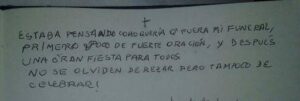 ESTABA PENSANDO COMO QUERÍA Q' FUERA MI FUNERAL,
PRIMERO POCO DE FUERTE ORACIÓN, Y DESPUÉS
UNA GRAN FIESTA PARA TODOS
NO SE OLVIDEN DE REZAR PERO TAMPOCO DE
CELEBRAR!